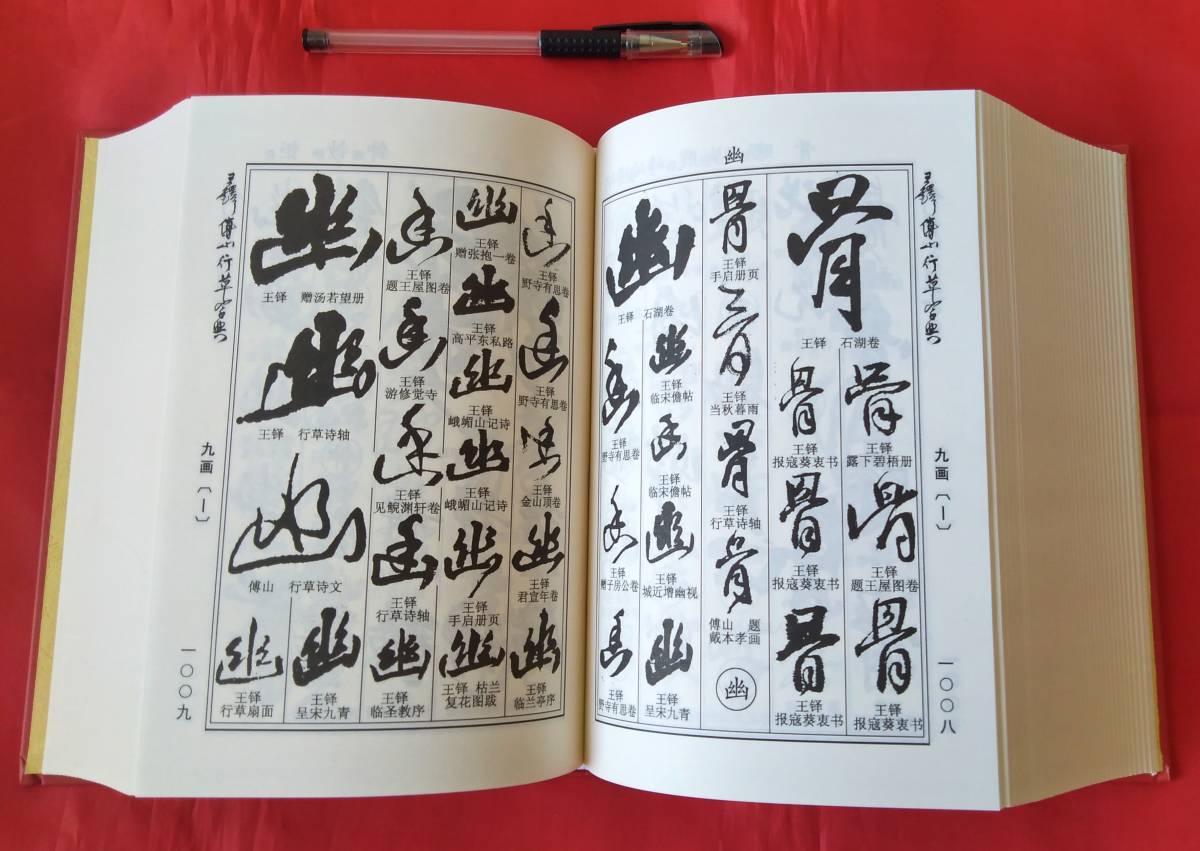 幽
王鐸傅山行草字典
九画〔丨〕
一〇〇八
骨
王铎 石湖卷
骨
王铎
露下碧梧册
骨
王铎
题王屋图卷
骨
王铎
报寇葵衷书
骨
王铎
报寇葵衷书
骨
王铎
报寇葵衷书
骨
王铎
报寇葵衷书
骨
王铎
手启册页
骨
王铎
当秋暮雨
骨
王铎
行草诗轴
骨
傅山 题
戴本孝画
幽
幽
王铎 石湖卷
幽
王铎
临宋儋帖
幽
王铎
临宋儋帖
幽
王铎
城近增幽视
幽
王铎
呈宋九青
幽
王铎
野寺有思卷
幽
王铎
赠子房公卷
幽
王铎
野寺有思卷
幽
王铎
野寺有思卷
幽
王铎
野寺有思卷
幽
王铎
金山顶卷
幽
王铎
君宣年卷
幽
王铎
临兰亭序
幽
王铎
赠张抱一卷
幽
王铎
高平东私路
幽
王铎
峨嵋山记诗
幽
王铎
峨嵋山记诗
幽
王铎
手启册页
幽
王铎 枯兰
复花图跋
幽
王铎
题王屋图卷
幽
王铎
游修觉寺
幽
王铎
见鲵渊轩卷
幽
王铎
行草诗轴
幽
王铎
临圣教序
幽
王铎 赠汤若望册
幽
王铎 行草诗轴
幽
傅山 行草诗文
幽
王铎
呈宋九青
幽
王铎
行草扇面
王鐸傅山行草字典
九画〔丨〕
一〇〇九